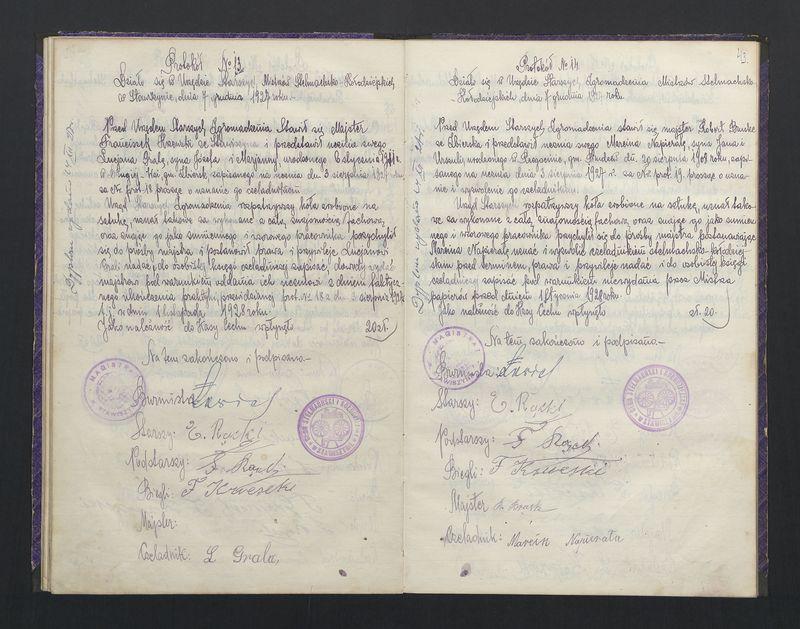 Protokół No 13
Działo się w Urzędzie Starszych Mistrzów Stelmachsko Kołodziejskich
w Stawiszynie, dnia 7 grudnia 1927 roku.
Przed Urzędem Starszych Zgromadzenia Stawił się Majster
Franciszek ze Stawiszyna i przedstawił ucznia swego
Lucjana Grala, syna Józefa i Marjanny urodzonego
gm. zapisanego na ucznia dn. 3 sierpnia 1927
za Nr. prot. 18 proszę o uznanie go czeladnikiem
Urząd Starszych Zgromadzenia rozpatrzywszy koła zrobione na
sztukę, uznał takowe za wykonane z całą znajomością fachową,
oraz znając go jako sumiennego i wzorowego pracownika przychylił
się do prośby majstra i postanowił prawa i przywileje Lucjanowi
Grali nadać, do osobistej księgi czeladniczej zapisać, dowody wydać
majstrowi pod warunkiem oddania ich uczniowi z dniem
ukończenia praktyki prot. nr. 18 z d. 3 sierpnia 1927
t.j. w dniu 1 listopada 1928 roku.
Jako należność do Kasy Cechu wpłynęło 20 zł.
Na tem zakończono i podpisano-
MAGISTRAT
STAWISZYN
Burmistrz
Starszy: E. Racki
Podstarszy: F.
Biegli: F
Majster:
Czeladnik: L Grala
43.
Protokół No 14
Działo się w Urzędzie Starszych Zgromadzenia Mistrzów Stelmachsko
Kołodziejskich dnia 7 grudnia 1927 roku.
Przed Urzędem Starszych Zgromadzenia stawił się majster Robert
ze Zbierska i przedstawił ucznia swego Marcina Napierałę, syna Jana i
Urszuli urodzonego w gm. dn. 20 sierpnia 1908 roku, zapi-
sanego na ucznia dnia 3 sierpnia 1927 r. za Nr. prot. 19. proszę o uzna-
nie i wyzwolenie go czeladnikiem.
Urząd Starszych rozpatrzywszy koła zrobione na sztukę, uznał tako-
we za wykonane z całą znajomością fachową, oraz znając go jako sumien-
nego i wzorowego pracownika przychylił się do prośby majstra postanawiając
Marcina Napierałę uznać i wpisać czeladnikiem stelmachsko-kołodziej-
skim przed terminem, prawa i przywileje nadać i do osobistej księgi
czeladniczej zapisać pod warunkiem niewydania przez Mistrza
papierów przed dniem 1 stycznia 1928 roku
Jako należność do Kasy Cechu wpłynęło zł. 20.
Na tem zakończono i podpisano-
MAGISTRAT
STAWISZYN
Burmistrz
Starszy: E. Racki
Podstarszy: F.
Biegli: F
Majster
Czeladnik: Marcin Napierała